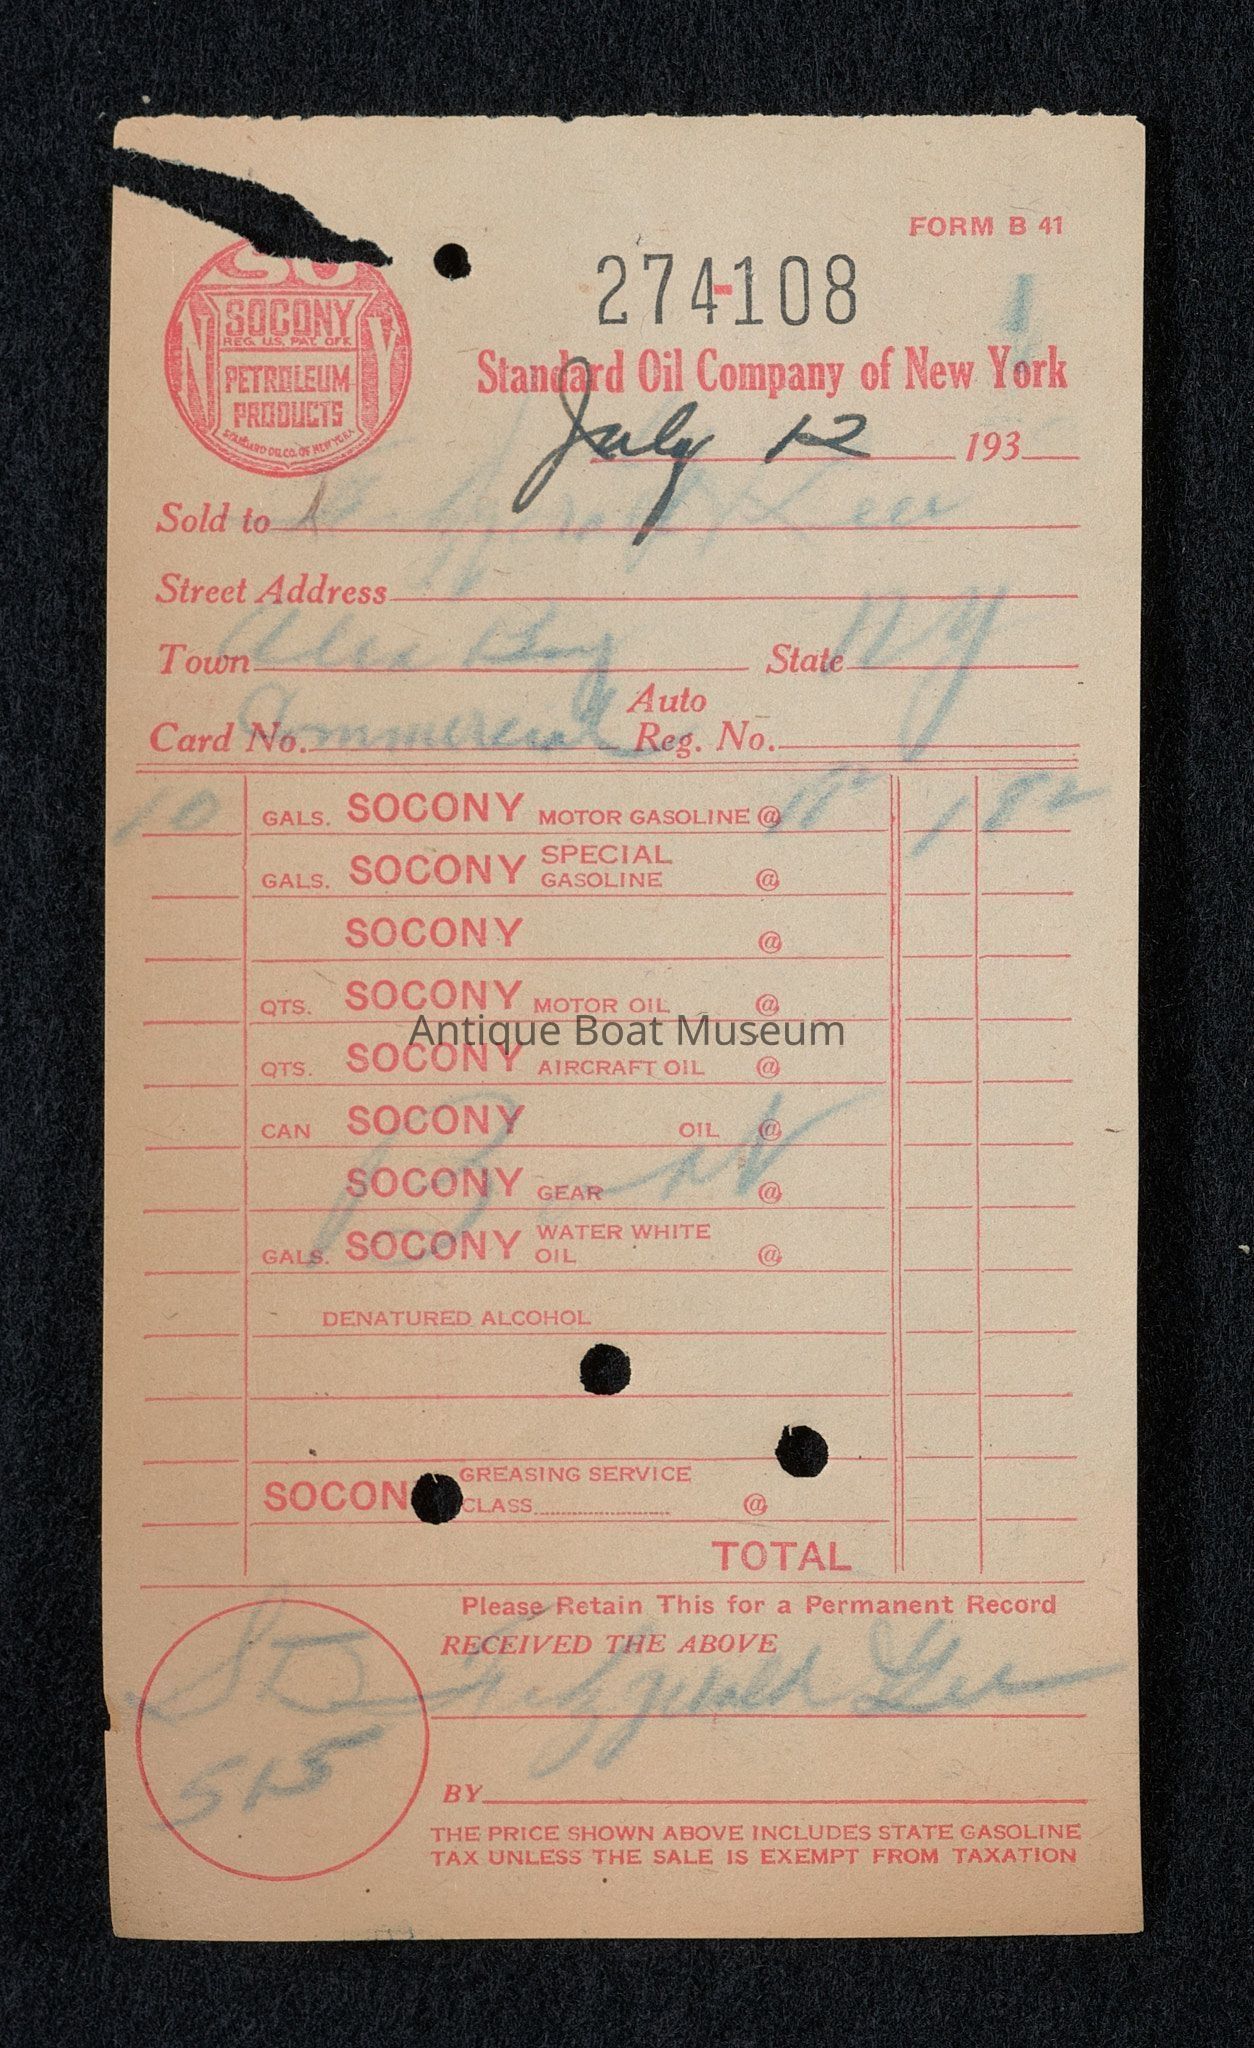 FORM B 41
SO
SOCONY
REG. U.S. PAT. OFF.
N Y
PETROLEUM
PRODUCTS
STANDARD OIL CO. OF NEW YORK
274-108
Standard Oil Company of New York
July 12 193
Sold to
Street Address
Town Alex Bay State NY
Auto
Card No. Commercial Reg. No.
10 GALS. SOCONY MOTOR GASOLINE @ 1 82
SPECIAL
GALS. SOCONY GASOLINE @
SOCONY @
QTS. SOCONY MOTOR OIL @
Antique Boat Museum
QTS. SOCONY AIRCRAFT OIL @
CAN SOCONY OIL @
Boat
SOCONY GEAR @
WATER WHITE
GALS. SOCONY OIL @
DENATURED ALCOHOL
GREASING SERVICE
SOCON CLASS @
TOTAL
Please Retain This for a Permanent Record
RECEIVED THE ABOVE
Fitzgerald & Lee
515
BY
THE PRICE SHOWN ABOVE INCLUDES STATE GASOLINE
TAX UNLESS THE SALE IS EXEMPT FROM TAXATION